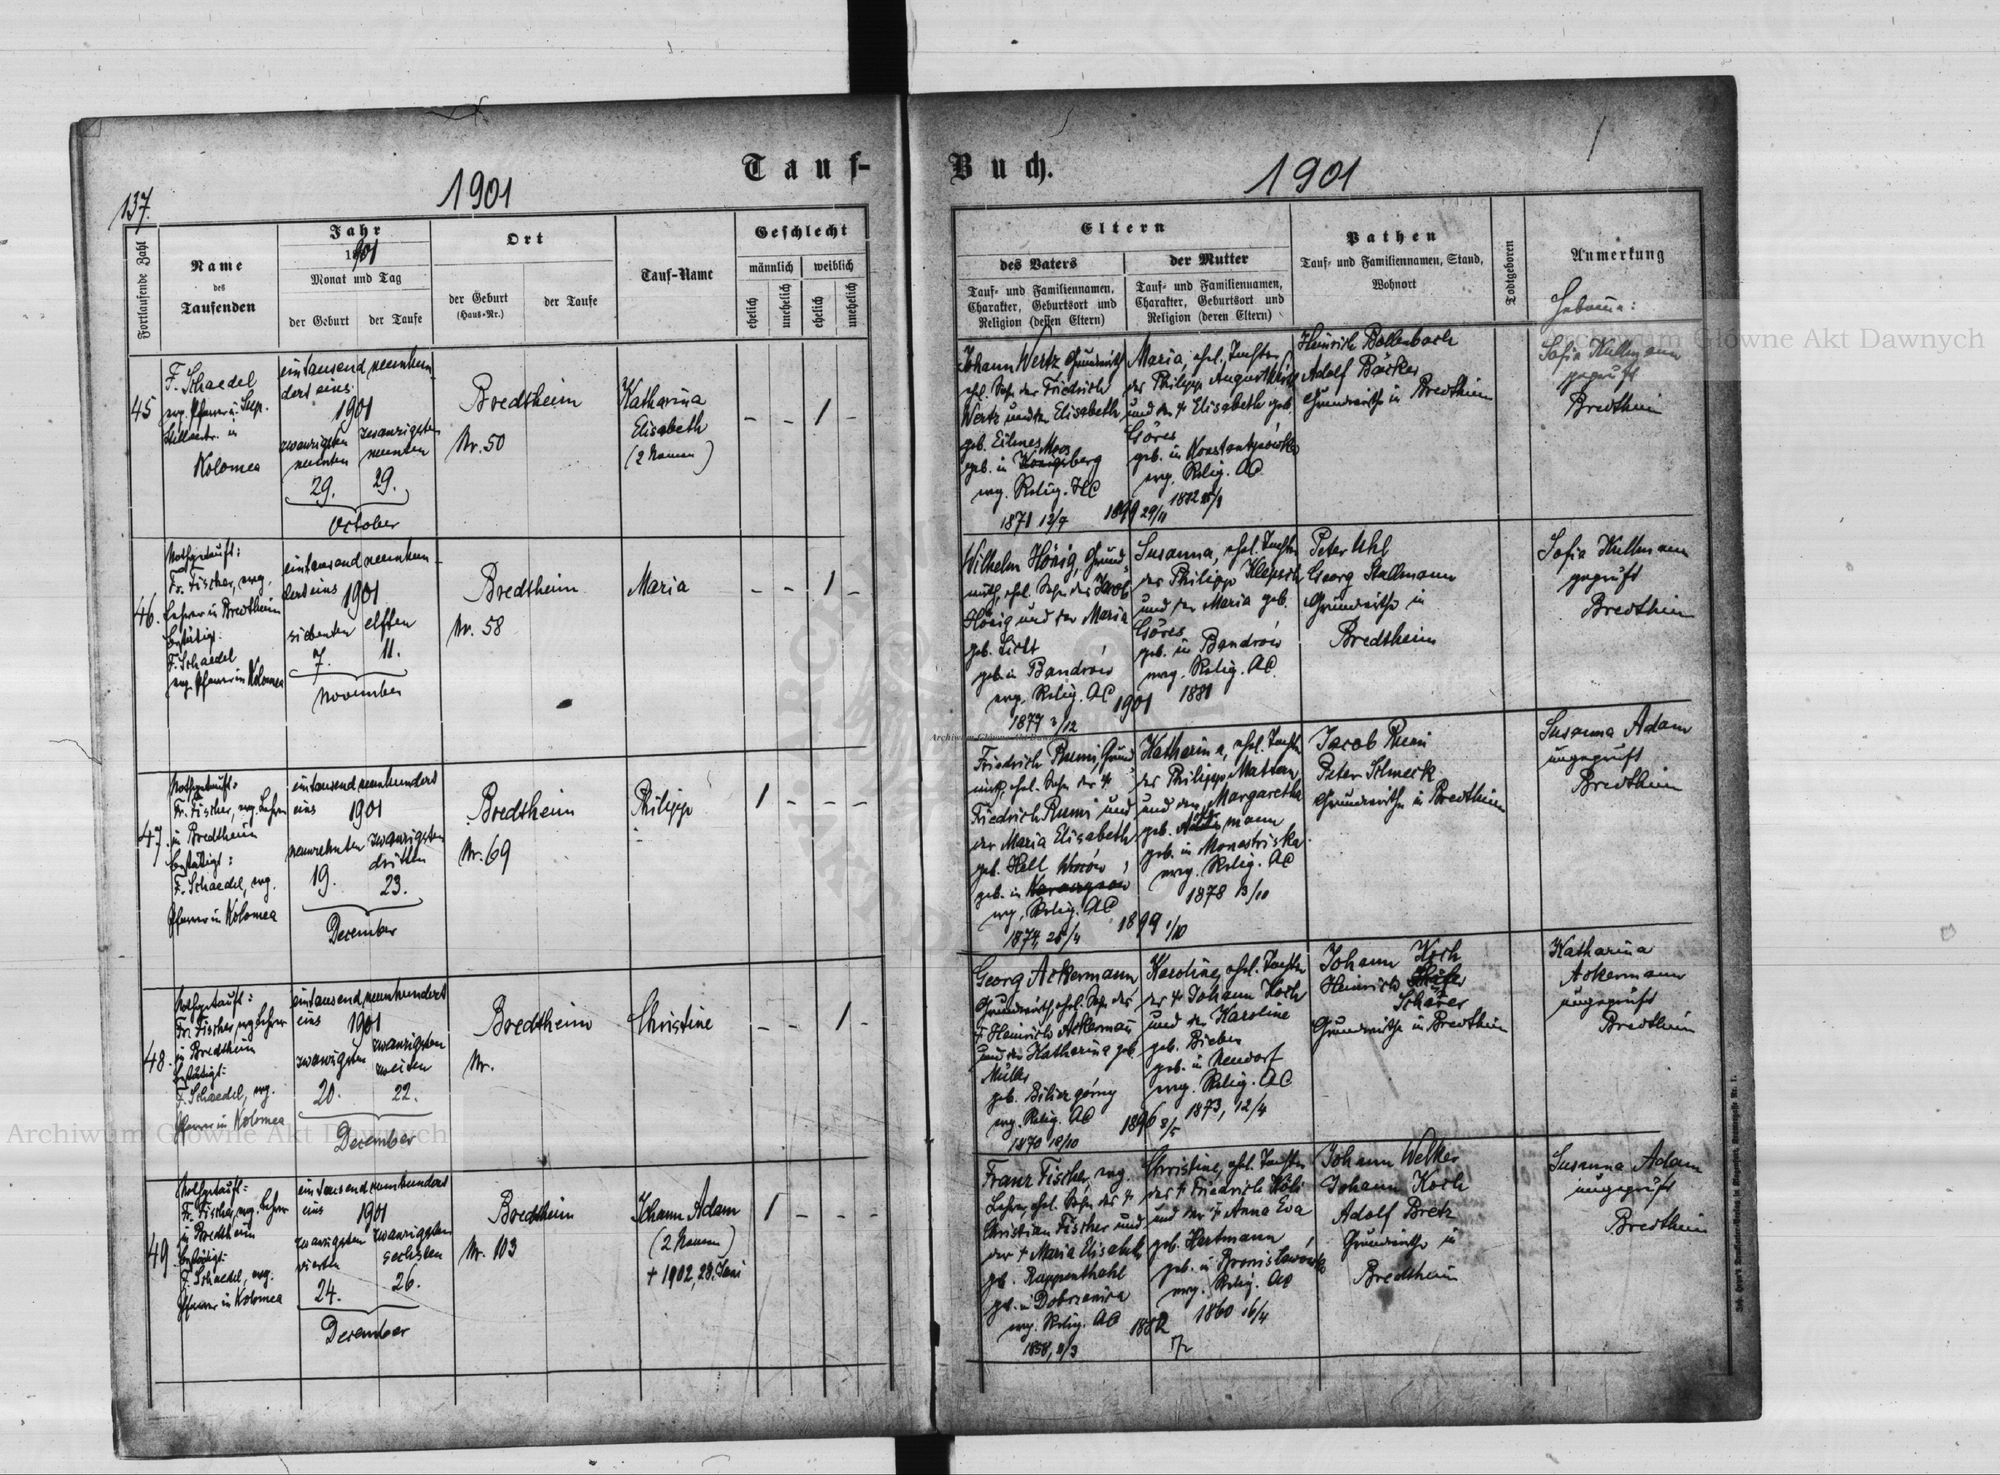 Tauf-
Buch.
137.
1901
1901
Fortlaufende Zahl
Name
des
Taufenden
Jahr
1901
Monat und Tag
der Geburt
der Taufe
Ort
der Geburt
(Haus-Nr.)
der Taufe
Tauf-Name
Geschlecht
männlich
weiblich
ehelich
unehelich
ehelich
unehelich
Eltern
des Vaters
Tauf- und Familiennamen,
Charakter, Geburtsort und
Religion (dessen Eltern)
der Mutter
Tauf- und Familiennamen,
Charakter, Geburtsort und
Religion (deren Eltern)
Pathen
Tauf- und Familiennamen, Stand,
Wohnort
Todtgeboren
Anmerkung
45
F. Schaedel
evg. Pfarrer u. Sup.
in
Kolomea
eintausend neunhun
dert eins
1901
zwanzigsten
neunten
29.
zwanzigsten
neunten
29.
October
Bredtheim
Nr. 50
Katharina
Elisabeth
(2 Namen)
- - 1 -
Johann Wertz Grundwirth
ehl. Sohn des Friedrich
Wertz und der Elisabeth
geb. Eilmes
Moos
geb. in Königsberg
evg. Relig. HC
1871 12/7
1899 29/11
Maria, ehl. Tochter
des Philipp August
und der † Elisabeth geb.
Göres
geb. in Konstantynówka
evg. Relig. AC
Heinrich Bollenbach
Adolf Bäcker
Grundwirthe in Bredtheim
Sofia Kullmann
geprüft
Bredtheim
46.
Nothgetauft:
Fr. Fischer, evg.
Lehrer in Bredtheim
bestätigt:
F. Schaedel
evg. Pfarrer in Kolomea
eintausend neunhun
dert eins 1901
siebenten
7.
elften
11.
November
Bredtheim
Nr. 58
Maria
- - 1 -
Wilhelm Hönig, Grund
wirth, ehl. Sohn des Jacob
Hönig und der Maria
geb. Licht
geb. in Bandrów
evg. Relig. AC
1877 3/12
1901
Susanna, ehl. Tochter
des Philipp Klepsch
und der Maria geb.
Göres
geb. in Bandrów
evg. Relig. AC.
1881
Peter Uhl
Georg Stallmann
Grundwirthe in
Bredtheim
Sofia Kullmann
geprüft
Bredtheim
47.
Nothgetauft:
Fr. Fischer, evg. Lehrer
in Bredtheim
bestätigt:
F. Schaedel, evg.
Pfarrer in Kolomea
eintausend neunhundert
eins
1901
neunzehnten
19.
zwanzigsten
dritten
23.
December
Bredtheim
Nr. 69
Philipp
1 - - -
Friedrich Rumi, Grund
wirth, ehl. Sohn des †
Friedrich Rumi und
der Maria Elisabeth
geb. Hell
geb. in
evg. Relig. AC
1874, 25/4
1899 1/10
Katharina, ehl. Tochter
des Philipp Mattern
und der Margaretha
geb.
geb. in Monastriska
evg. Relig. AC
1878 13/10
Jacob Rumi
Peter Schmeck
Grundwirthe in Bredtheim
Susanna Adam
ungeprüft
Bredtheim
48.
Nothgetauft:
Fr. Fischer, evg. Lehrer
in Bredtheim
bestätigt:
F. Schaedel, evg.
Pfarrer in Kolomea
eintausend neunhundert
eins
1901
zwanzigsten
20.
zwanzigsten
zweiten
22.
December
Bredtheim
Nr.
Christine
- - 1 -
Georg Ackermann
Grundwirth ehl. Sohn des
† Heinrich Ackermann
und der Katharina geb.
Müller
geb.
evg. Relig. AC
1870 18/10
1896 3/5
Karoline, ehl. Tochter
des † Johann Koch
und der Karoline
geb. Bieber
geb. in Neudorf
evg. Relig. AC
1873, 12/4
Johann Koch
Heinrich
Schärer
Grundwirthe in Bredtheim
Katharina
Ackermann
ungeprüft
Bredtheim
49.
Nothgetauft:
Fr. Fischer, evg. Lehrer
in Bredtheim
bestätigt:
F. Schaedel, evg.
Pfarrer in Kolomea
eintausend neunhundert
eins
1901
zwanzigsten
vierten
24.
zwanzigsten
sechsten
26.
December
Bredtheim
Nr. 103
Johann Adam
(2 Namen)
† 1902, 28. Juni
1 - - -
Franz Fischer, evg.
Lehrer, ehl. Sohn des †
Christian Fischer und
der † Maria Elisabeth
geb. Rappenthahl
geb. in Dobrzanica
evg. Relig. AC
1882
Christine, ehl. Tochter
des † Friedrich
und der † Anna Eva
geb. Hartmann
geb. in Bronislawówka
evg. Relig. AC
1860 16/4
Johann Welker
Johann Koch
Adolf Bretz
Grundwirthe in
Bredtheim
Susanna Adam
ungeprüft
Bredtheim
Archiwum Główne Akt Dawnych
Archiwum Główne Akt Dawnych
Archiwum Główne Akt Dawnych